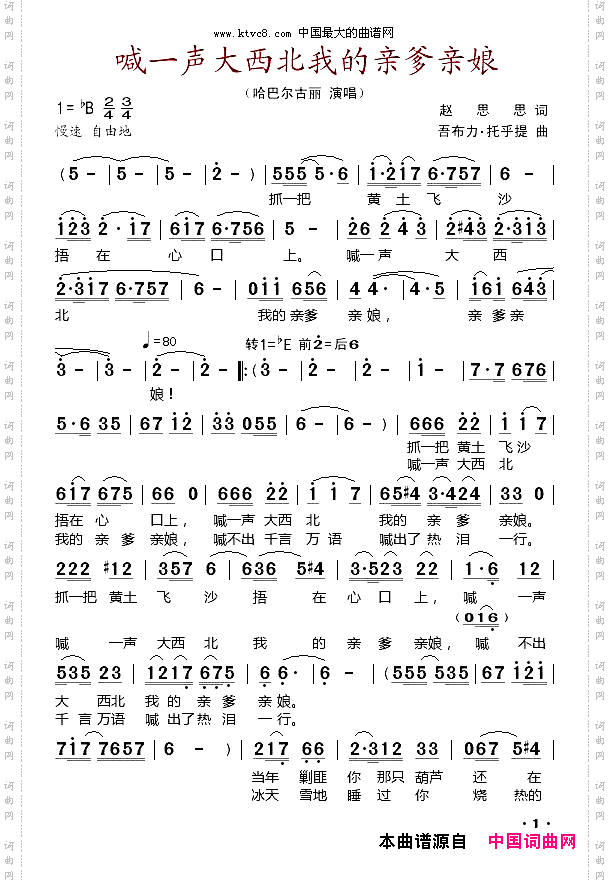 www.ktvc8.com 中国最大的曲谱网
喊一声大西北我的亲爹亲娘
(哈巴尔古丽 演唱)
1=♭B 2/4 3/4
赵 思 思 词
慢速 自由地
吾布力·托乎提 曲
(5 - | 5 - | 5 - | 2 - ) | 555 5·6 | 1·217 6·757 |
抓一把 黄 土 飞 沙
123 2·17 | 617 6·756 | 5 - | 26 2 4 3 | 2#43 2·313 |
捂 在 心 口 上。 喊一 声 大 西
2·317 6·757 | 6 - | 011 656 | 4 4· | 4·5 | 616 643 |
北 我的 亲爹 亲 娘, 亲 爹 亲
♩=80 转1=♭E 前2=后6
3 - | 3 - | 2 - | 2 - ‖:( 3 - | 2 - | 2 - | 1 - | 7·7 676 |
娘!
5·6 35 | 67 12 | 33 055 | 6 - | 6 - ) | 666 22 | 1 17 |
抓一把 黄土 飞 沙
喊一声 大西 北
617 675 | 66 0 | 666 22 | 1 17 | 65#4 3·424 | 33 0 |
捂在 心 口上, 喊一声 大西 北 我的 亲 爹 亲娘。
我的 亲 爹 亲娘, 喊不出 千言 万 语 喊出了 热 泪 一行。
222 #12 | 335 7 | 636 5#4 | 3·235 | 22 | 1·6 12 |
抓一把 黄土 飞 沙 捂 在 心 口 上, 喊 一声
(016)
喊 一声 大西 北 我 的 亲爹 亲娘, 喊 不出
535 23 | 1217 675 | 6 6· | 6 - | (555 535 | 67 121 |
大 西北 我 的 亲 爹 亲娘。
千 言 万语 喊 出了热 泪 一行。
717 7657 | 6 - ) | 217 66 | 2·312 33 | 067 5#4 |
当年 剿匪 你 那只 葫芦 还 在
冰天 雪地 睡 过 你 烧 热的
· 1 ·
本曲谱源自 中国词曲网